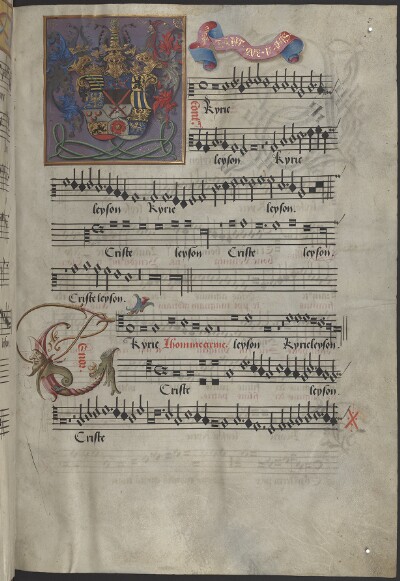 Kyrie
Cont.
leyson Kyrie
leyson Kyrie leyson.
Criste leyson Criste leyson.
Criste leyson.
Kyrie Lhomme arme. leyson Kyrieleyson
Teno.
Criste leyson.
Criste